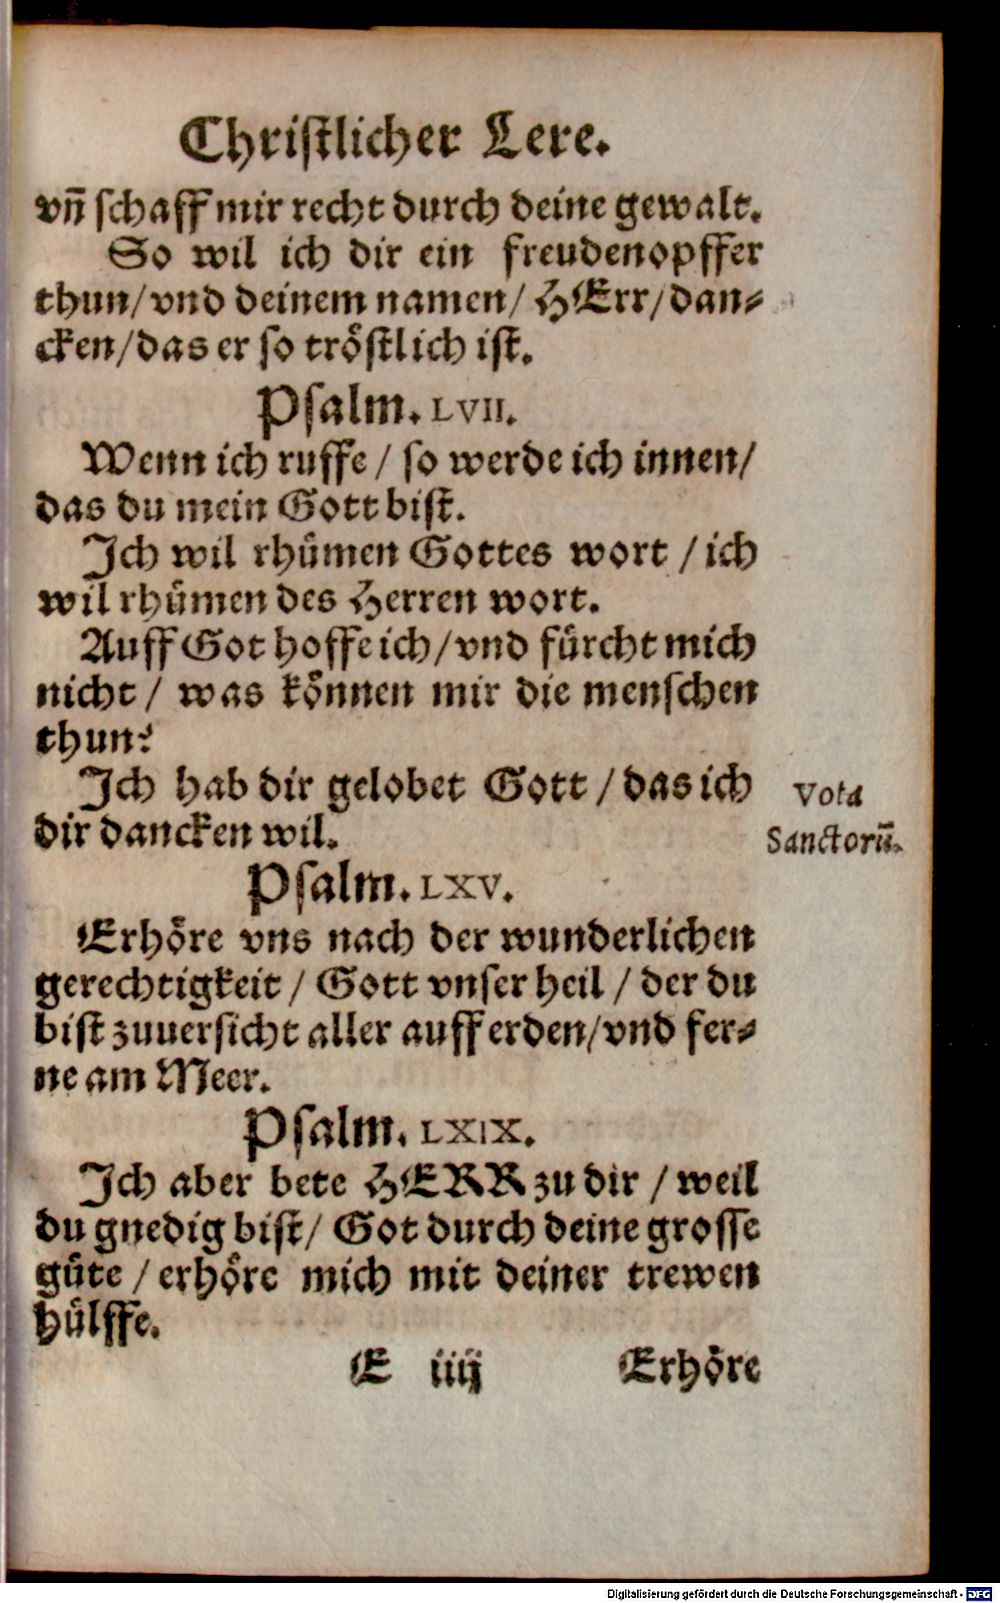 Christlicher Lere.
vñ schaff mir recht durch deine gewalt.
So wil ich dir ein freudenopffer
thun/vnd deinem namen/ HErr/dan⸗
cken/das er so tröstlich ist.
Psalm. LVII.
Wenn ich ruffe / so werde ich innen/
das du mein Gott bist.
Ich wil rhümen Gottes wort / ich
wil rhümen des Herren wort.
Auff Got hoffe ich/vnd fürcht mich
nicht / was können mir die menschen
thun?
Ich hab dir gelobet Gott / das ich
dir dancken wil.
Vota
Sanctorū.
Psalm. LXV.
Erhöre vns nach der wunderlichen
gerechtigkeit / Gott vnser heil / der du
bist zuuersicht aller auff erden/vnd fer⸗
ne am Meer.
Psalm. LXIX.
Ich aber bete HERR zu dir / weil
du gnedig bist/ Got durch deine grosse
güte / erhöre mich mit deiner trewen
hülffe.
E iiij Erhöre
Digitalisierung gefördert durch die Deutsche Forschungsgemeinschaft - DFG